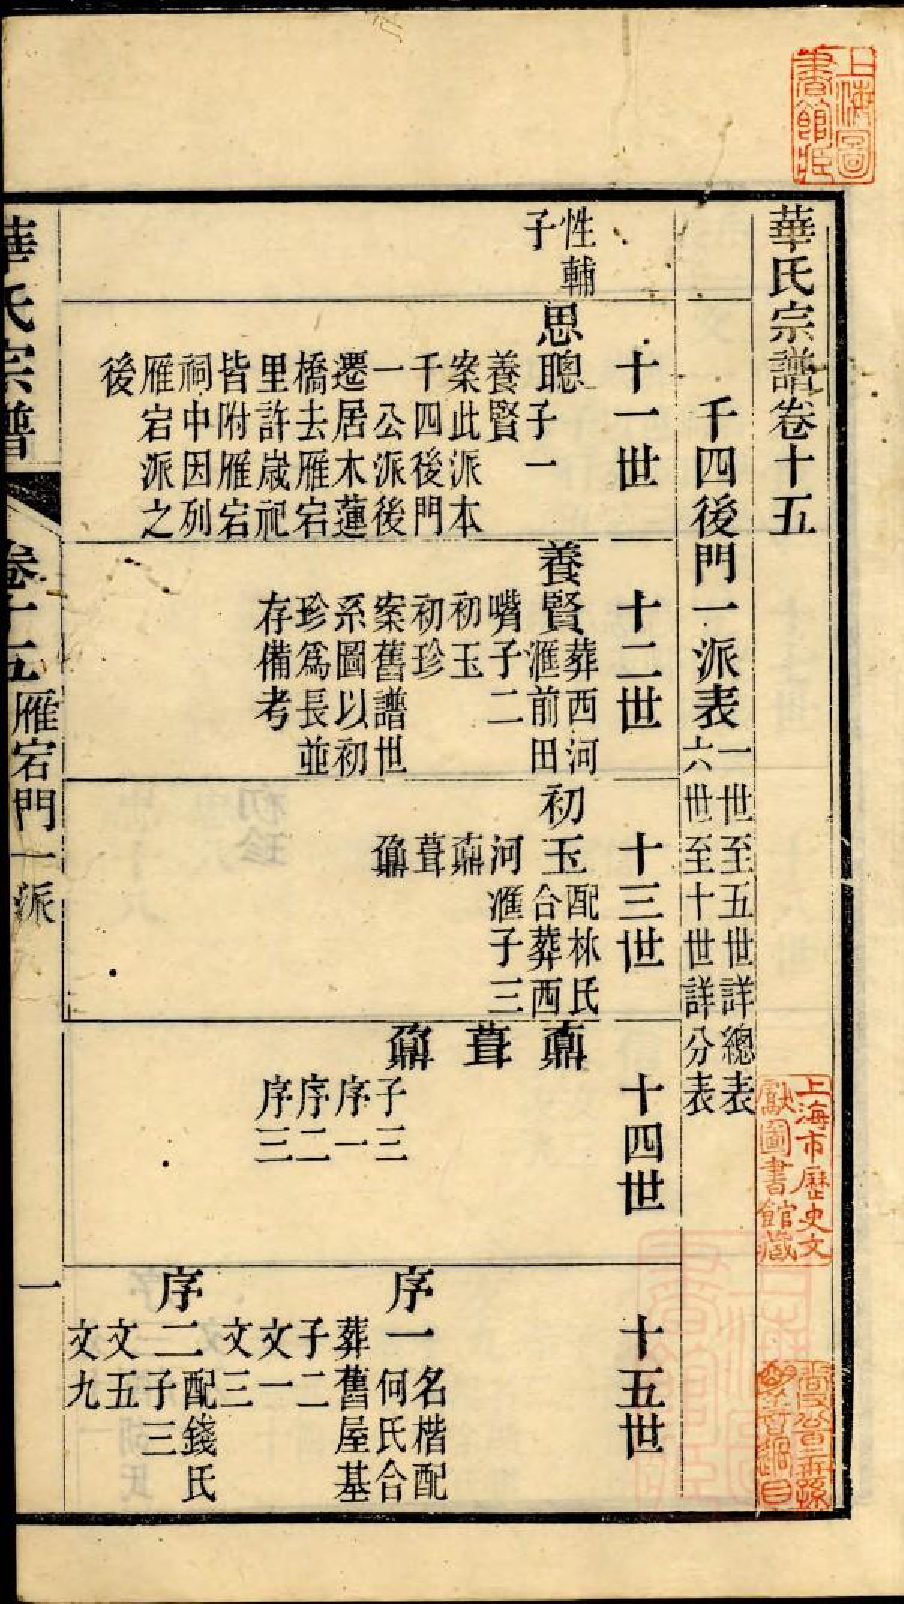 上海圖
書館藏
華氏宗譜卷十五
千四後門一派表
一世至五世詳總表
六世至十世詳分表
上海市歷史文
獻圖書館藏
十一世
性輔
子
思聰
子一
養賢
案此派本
千四後門
一公派後
遷居木蓮
橋去雁宕
里許歲祀
皆附雁宕
祠中因列
雁宕派之
後
十二世
養賢
葬西河
滙前田
嘴子二
初玉
初珍
案舊譜世
系圖以初
珍爲長並
存備考
十三世
初玉
配林氏
合葬西
河滙子三
葺
十四世
葺
子三
序一
序二
序三
十五世
序一
名楷配
何氏合
葬舊屋基
子二
文一
文三
序二
配錢氏
子三
文五
文九
華氏宗譜
卷十五
雁宕門一派
一